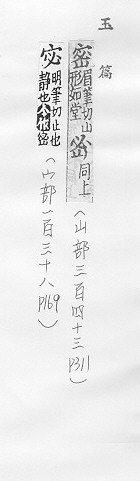 玉篇
密眉筆切山形如堂 同上(山部三百四十三P311)
宓明筆切止也靜也今作密(宀部一百三十八P169)